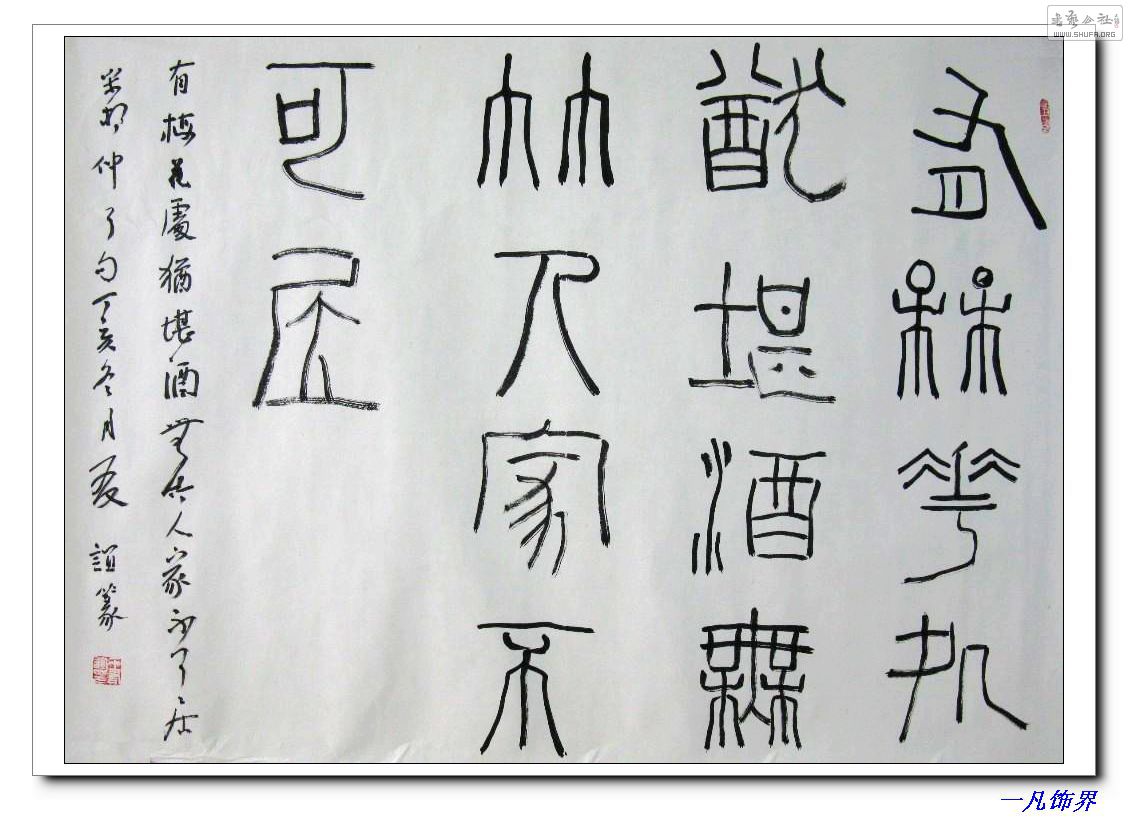 书艺公社
WWW.SHUFA.ORG
有槑華処
猶堪酒無
竹人家不
可居
有梅花處猶堪酒無竹人家不可居
仲可句丁亥冬月誼篆
一凡饰界